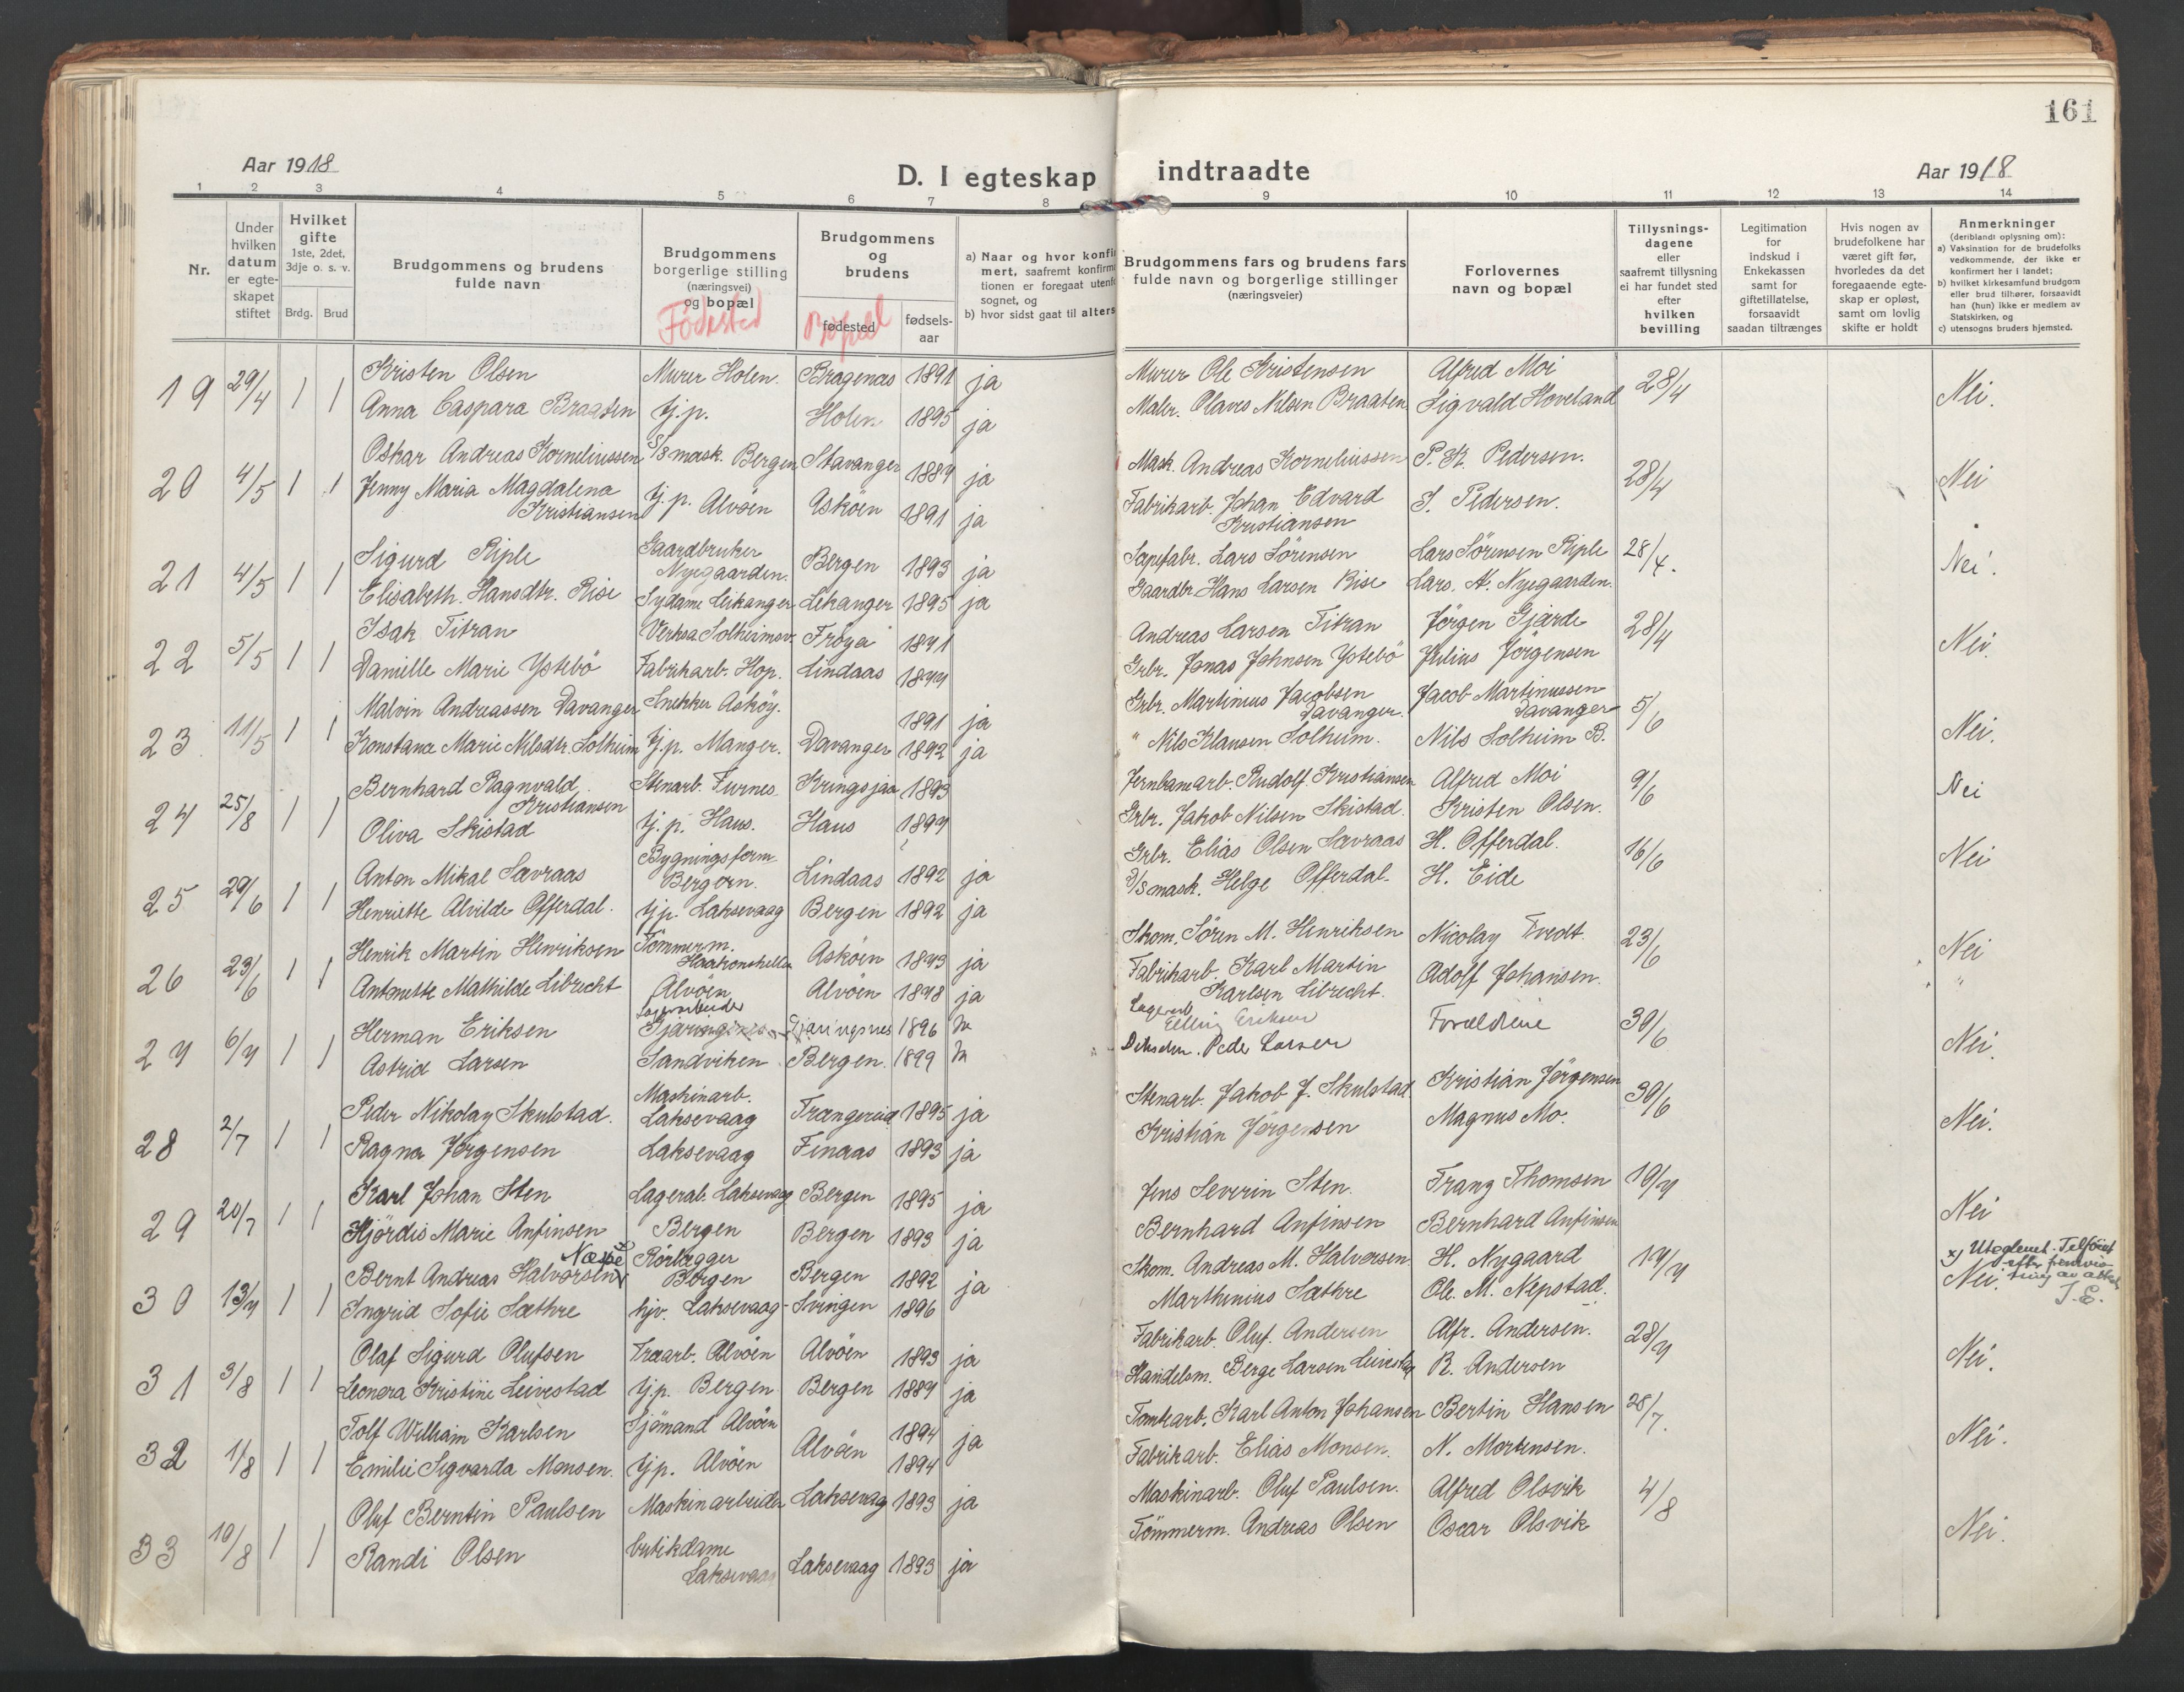 161
Aar 1918
D. I egteskap indtraadte
Aar 1918
1 2 3 4 5 6 7 8 9 10 11 12 13 14
Nr.
Under hvilken datum er egte-skapet stiftet
Hvilket gifte 1ste, 2det, 3dje o. s. v.
Brdg. Brud
Brudgommens og brudens fulde navn
Brudgommens borgerlige stilling (næringsvei) og bopæl
Fødested
Brudgommens og brudens
fødested
Bopæl
fødsels-aar
a) Naar og hvor konfir
mert, saafremt konfirma
tionen er foregaat utenfo
sognet, og
b) hvor sidst gaat til alters
Brudgommens fars og brudens fars fulde navn og borgerlige stillinger (næringsveier)
Forlovernes navn og bopæl
Tillysnings-dagene eller saafremt tillysning ei har fundet sted efter hvilken bevilling
Legitimation for indskud i Enkekassen samt for giftetillatelse, forsaavidt saadan tiltrænges
Hvis nogen av brudefolkene har været gift før, hvorledes da det foregaaende egte-skap er opløst, samt om lovlig skifte er holdt
Anmerkninger
(deriblandt oplysning om):
a) Vaksination for de brudefolks vedkommende, der ikke er konfirmert her i landet;
b) hvilket kirkesamfund brudgom eller brud tilhører, forsaavidt han (hun) ikke er medlem av Statskirken, og
c) utensogns bruders hjemsted.
19 29/4 1 1 Kristen Olsen Murer Holen. Bragenæs 1891 ja Murer Ole Kristensen Alfred Moi 28/4 Nei.
Anna Caspara Braaten hj.p. Holen 1895 ja Maler. Olaves Nilsen Braaten Sigvald Hoveland
20 4/5 1 1 Oskar Andreas Korneliussen D/S mask. Bergen Stavanger 1887 ja Mask. Andreas Korneliussen P. K. Pedersen. 28/4 Nei
Jenny Maria Magdalena Kristiansen hj.p. Alvöen Asköen 1891 ja Fabrikarb. Johan Edvard Kristiansen S. Pedersen.
21 4/5 1 1 Sigurd Riple Gaardbruker Nyegaarden. Bergen 1893 ja Sæpefabr. Lars Sörensen Lars Sörensen Riple 28/4. Nei.
Elisabeth. Hansdtr. Rise Sydame Leikanger Leikanger 1895 ja Gaardbr. Hans Larsen Rise Lars. H. Nyegaarden.
22 5/5 1 1 Isak Titran Verksa Solheimsv. Fröya 1871 Andreas Larsen Titran Jörgen Gjærde 28/4 Nei.
Danielle Marie Ystebö Fabrikarb. Hop. Lindaas 1877 Grbr. Jonas Johnsen Ystebö Julius Jörgensen
23 11/5 1 1 Malvin Andreassen Davanger Snekker Asköy. 1891 ja Grbr. Martinius Jacobsen Davanger. Jacob Martinussen Davanger 5/6 Nei.
Konstanse Marie Nilsdtr. Solheim hj.p. Manger. Davanger 1892 ja " Nils Klausen Solheim. Nils Solheim B.
24 25/8 1 1 Bernhard Ragnvald Kristiansen Stenarb. Furnes Kringsjaa 1893 Jernbanearb. Rudolf Kristiansen Alfred Moi 9/6 Nei
Oliva Skistad hj.p. Haus. Haus 1894 Grbr. Jakob Nilsen Skistad. Kristen Olsen.
25 29/6 1 1 Anton Mikal Sævraas Bygningsform. Bergen. Lindaas 1892 ja Grbr. Elias Olsen Sævraas H. Offerdal. 16/6 Nei
Henriette Alvilde Offerdal. hj.p. Laksevaag Bergen 1892 ja D/S mask. Helge Offerdal. H. Eide
26 23/6 1 1 Henrik Martin Henriksen Tömmerm. Haakonshellen Asköen 1873 ja Skom. Sören M. Henriksen Nicolay Tvedt. 23/6 Nei
Antonette Mathilde Librecht Alvöen Alvöen 1878 ja Fabrikarb. Karl Martin Karlsen Librecht. Adolf Johansen. "
27 6/7 1 1 Herman Eriksen Lagerarbeider Gjæringsnes Gjæringsnes 1896 Ja Lagerarb. Elling Eriksen Forældrene 30/6 Nei.
Astrid Larsen Sandviken Bergen. 1899 Ja Peder Larsen
28 2/7 1 1 Peder Nikolay Skulstad. Maskinarb. Laksevaag Trængereid 1895 ja Stenarb. Jakob J. Skulstad. Kristian Jörgensen 30/6 Nei.
Ragna Jörgensen Laksevaag Finaas 1893 ja Kristian Jörgensen Magnus Mo.
29 20/7 1 1 Karl Johan Sten Lagerab. Laksevaag Bergen 1895 ja Jens Severin Sten. Franz Thomsen 10/7 Nei
Hjördis Marie Anfinsen Bergen Bergen 1893 ja Bernhard Anfinsen Bernhard Anfinsen
30 13/7 1 1 Bernt Andreas Halvorsen x) Næpe Rörlægger Bergen Bergen 1892 ja Skom. Andreas M. Halvorsen. H. Nygaard 14/7 Nei.
x) Uteglemt. Tilföiet efter fremvisning av attest. J. E.
Ingrid Sofie Sæthre hjv. Laksevaag Svingen 1896 Marthinius Sæthre Ole. M. Nepstad.
31 3/8 1 1 Olaf Sigurd Olufsen Træarb. Alvöen Alvöen 1893 ja Fabrikarb. Oluf. Andersen Alfr. Andersen. 28/7 Nei.
Leonora Kristine Leivestad hj.p. Bergen Bergen 1887 ja Handelsm. Berge Larsen Leivestad R. Andersen
32 1/8 1 1 Tolf William Karlsen Sjömand Alvöen Alvöen 1894 ja Tomtearb. Karl Anton Johansen Bertin Hansen 28/7. Nei.
Emilie Sigvarda Monsen. hj.p. Alvöen 1894 Fabrikarb. Elias Monsen. N. Mortensen.
33 10/8 1 1 Oluf Berntin Paulsen Maskinarbeider Laksevaag 1893 ja Maskinarb. Oluf Paulsen. Alfred Olsvik 4/8 Nei.
Randi Olsen butikdame Laksevaag Laksevaag 1893 ja Tömmerm. Andreas Olsen Oscar Olsvik